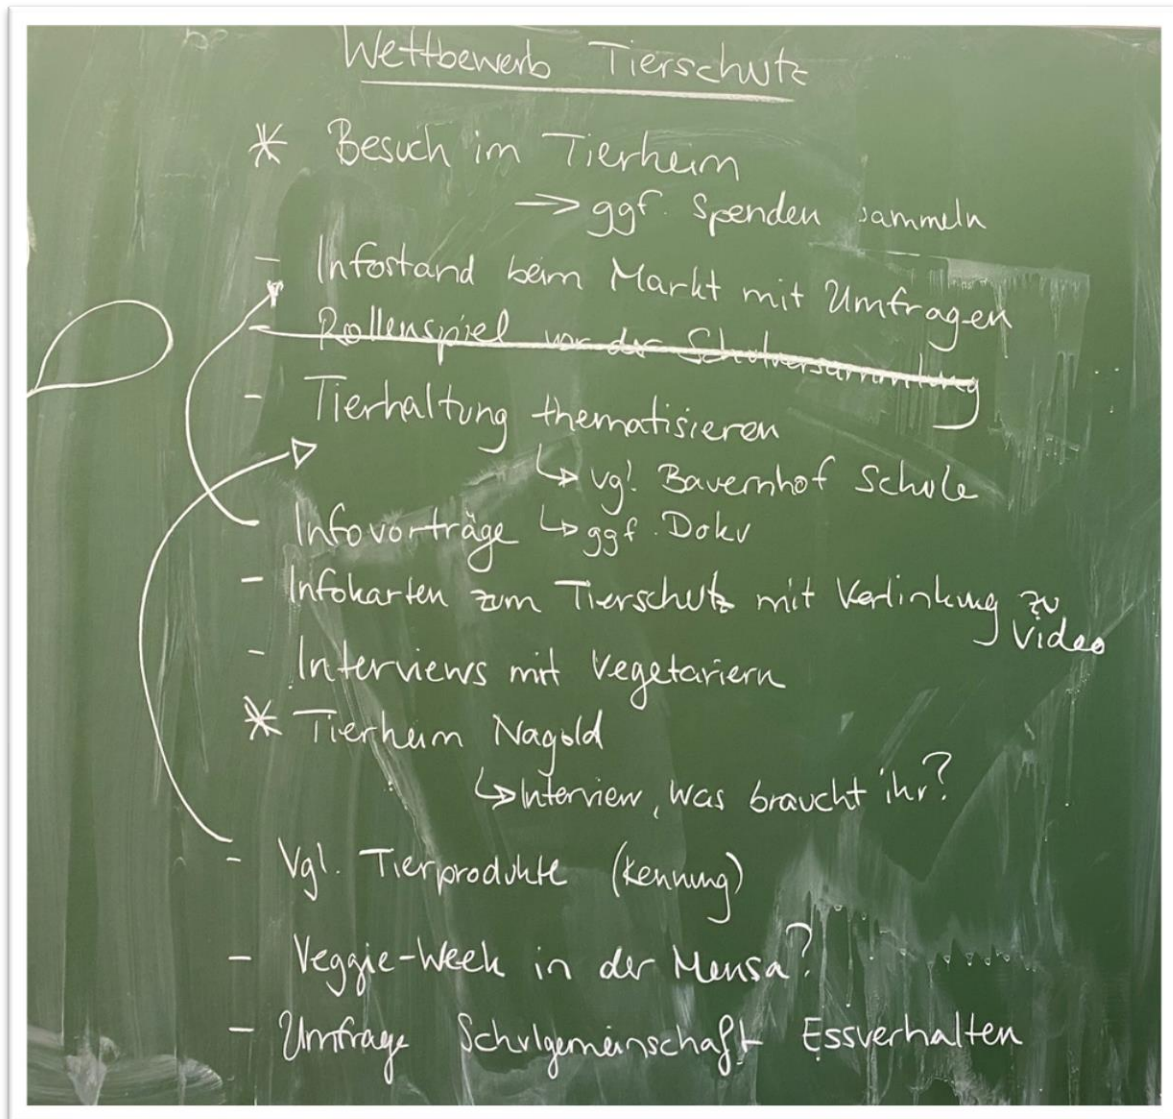 Wettbewerb Tierschutz
* Besuch im Tierheim
→ ggf. Spenden sammeln
- Infostand beim Markt mit Umfragen
- Rollenspiel vor der Schulversammlung
- Tierhaltung thematisieren
↳ vgl. Bauernhof Schule
Infovorträge ↳ ggf. Doku
- Infokarten zum Tierschutz mit Verlinkung zu
Video
- Interviews mit Vegetariern
* Tierheim Nagold
↳ Interview, Was braucht ihr?
- Vgl. Tierprodukte (Kennung)
- Veggie-Week in der Mensa?
- Umfrage Schulgemeinschaft Essverhalten